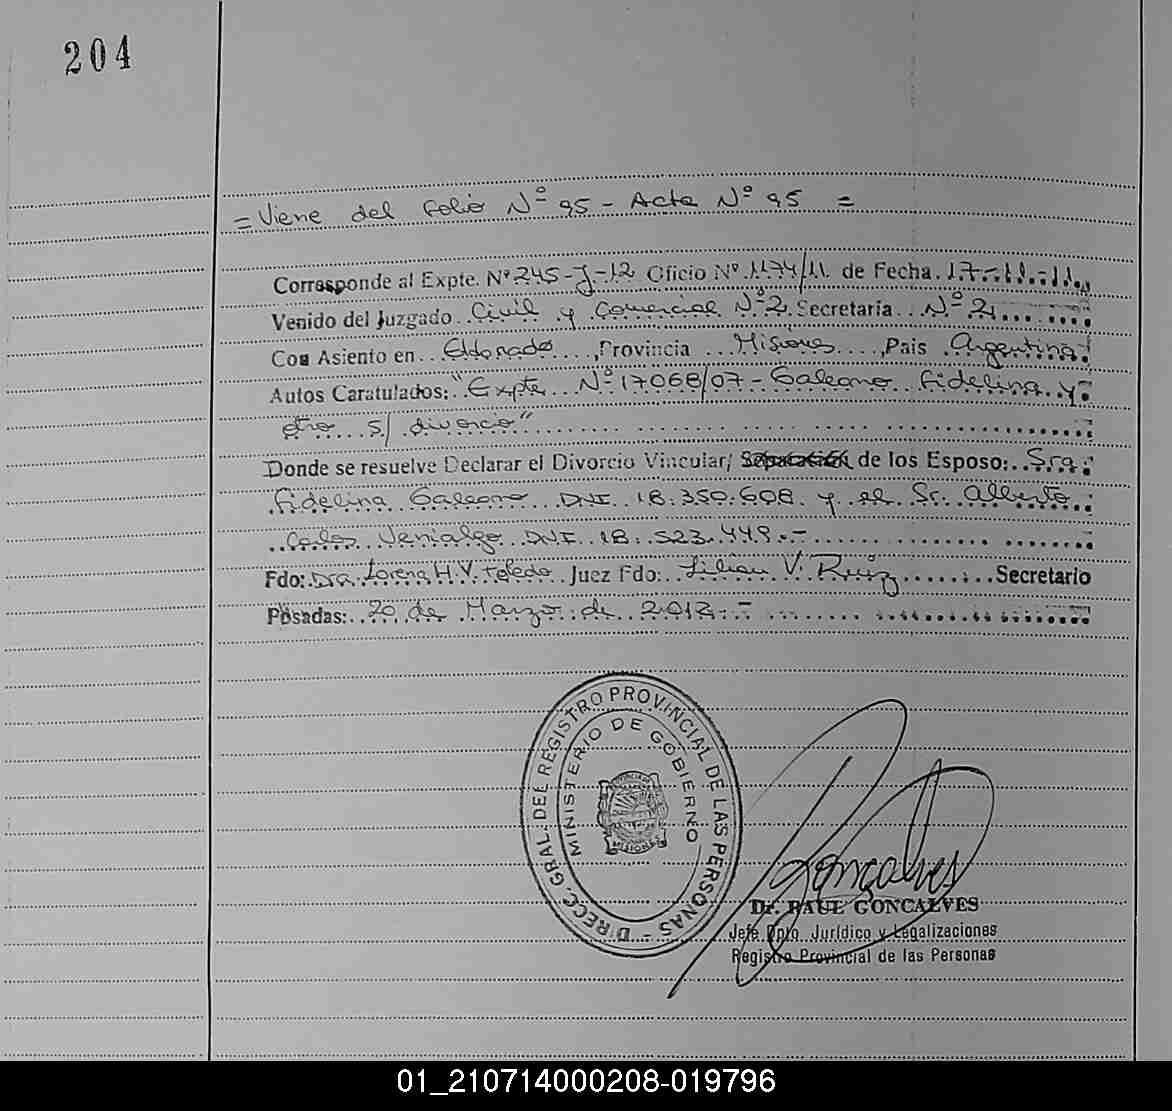 204
= Viene del folio Nº 95 - Acta Nº 95 =
Corresponde al Expte. Nº 245-J-12 Oficio Nº 1174/11 de Fecha. 17-11-11.
Venido del Juzgado Civil y Comercial Nº 2 Secretaría Nº 2
Con Asiento en Eldorado, Provincia Misiones, Pais Argentina
Autos Caratulados: "Expte Nº 17068/07 - Galeano Fidelina y
otro s/ divorcio"
Donde se resuelve Declarar el Divorcio Vincular/ Separación de los Esposo: Sra.
Fidelina Galeano DNI 18.350.608 y el Sr. Alberto
Carlos Venialgo DNI 18.523.449.-
Fdo: Dra. Lorena H. V. Toledo Juez Fdo: Lilian V. Ruiz Secretario
Posadas: 20 de Marzo de 2012.-
DIRECC. GRAL. DEL REGISTRO PROVINCIAL DE LAS PERSONAS -
MINISTERIO DE GOBIERNO
MISIONES
Gonçalves
Dr. RAUL GONCALVES
Jefe Dpto. Jurídico y Legalizaciones
Registro Provincial de las Personas
01_210714000208-019796